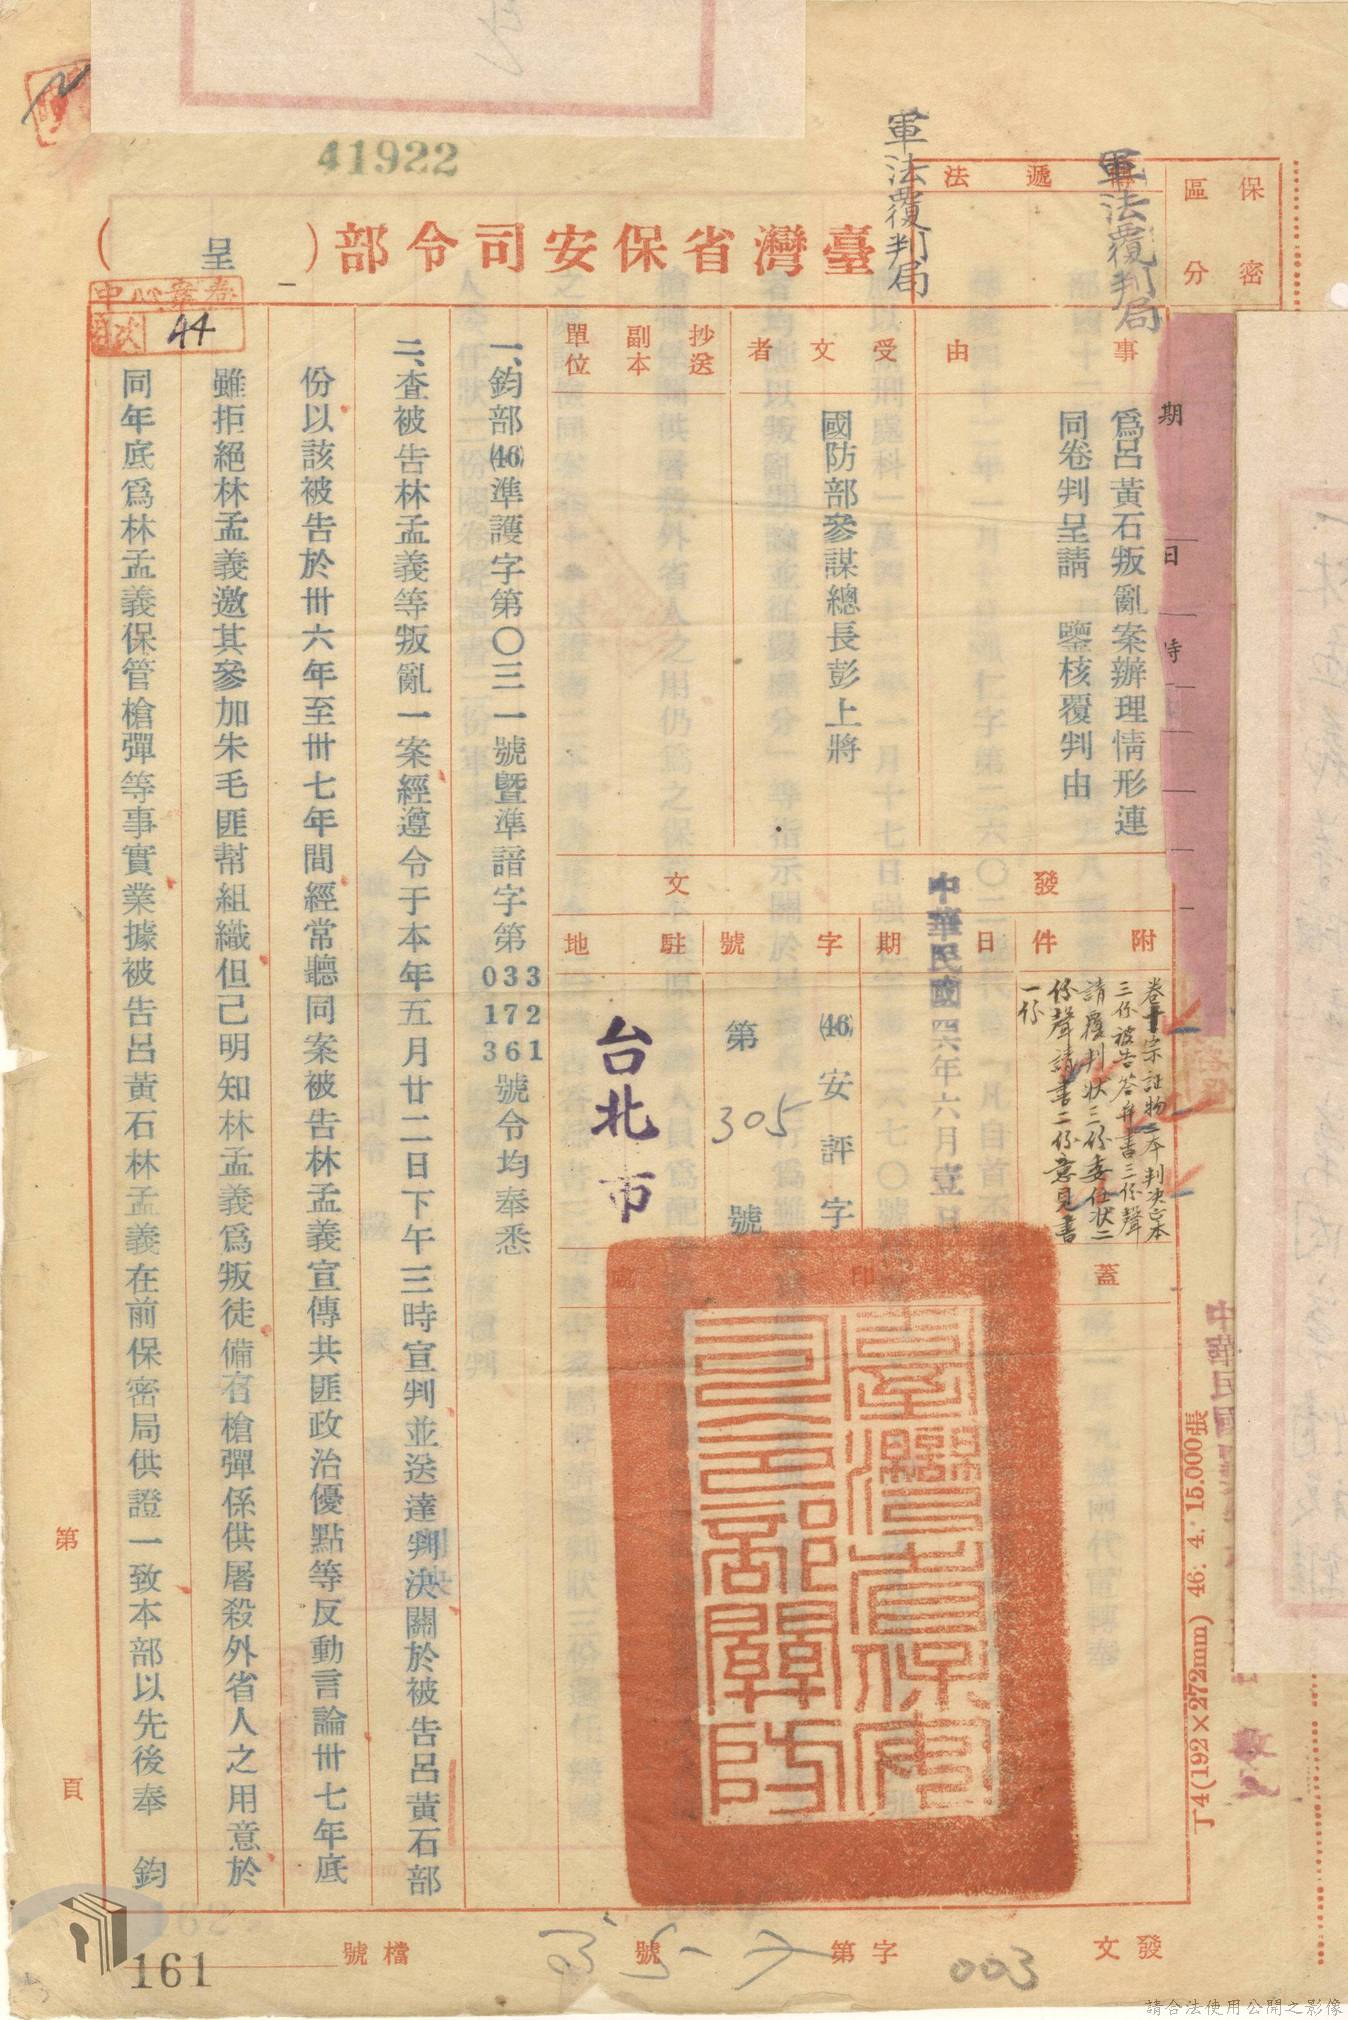 41922
軍法覆判局
軍法覆判局
保密
區分
遞
法
臺灣省保安司令部(呈)
卷案心中
目次
44
事由
為呂黃石叛亂案辦理情形連
同卷判呈請 鑒核覆判由
受文者
國防部參謀總長彭上將
抄送
副本
單位
期
日
時
發文
附件
卷十宗証物二本判決正本
三份被告答弁書三份聲
請覆判狀三份委任狀二
份聲請書二份意見書
一份
日期
中華民國四六年六月壹日
字號
(46)安評字
第305號
駐地
台北市
蓋印
臺灣省保安司令部關防
一、鈞部(46)準護字第〇三一號暨準諳字第
033
172
361
號令均奉悉
二、查被告林孟義等叛亂一案經遵令于本年五月廿二日下午三時宣判並送達判決關於被告呂黃石部
份以該被告於卅六年至卅七年間經常聽同案被告林孟義宣傳共匪政治優點等反動言論卅七年底
雖拒絕林孟義邀其參加朱毛匪幫組織但已明知林孟義為叛徒備有槍彈係供屠殺外省人之用意於
同年底為林孟義保管槍彈等事實業據被告呂黃石林孟義在前保密局供證一致本部以先後奉 鈞
第 頁
丁4(192×272mm) 46. 4. 15.000張
中華民國
發文
003
字第
號
檔號
161
請合法使用公開之影像